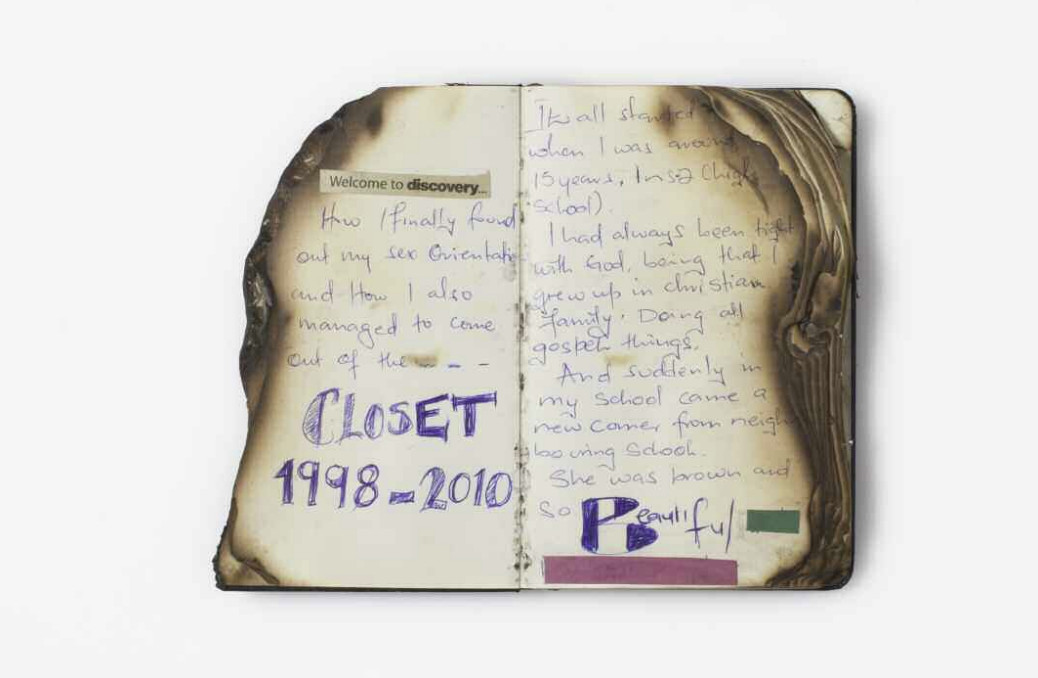 Welcome to discovery...
How I finally found
out my sex Orientati
and How I also
managed to come
out of the - - -
CLOSET
1998-2010
It all started
when I was around
15 years, In S2 (high
School).
I had always been tight
with God, being that I
grew up in christian
family. Doing all
gospel things.
And suddenly in
my School came a
new comer from neigh
bouring School.
She was brown and
so Beautiful